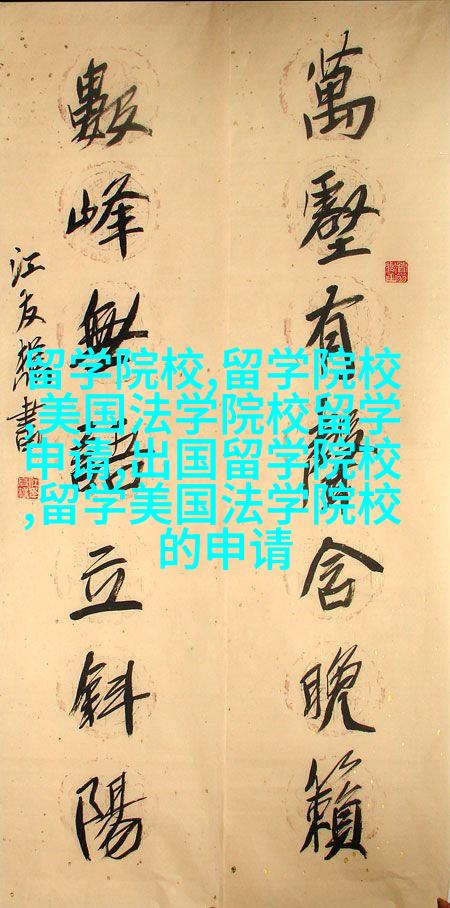 萬壑有聲含晚籟
數峰無語立斜陽
江友樵書
留学院校,留学院校
,美国法学院校留学
申请,出国留学院校
,留学美国法学院校
的申请